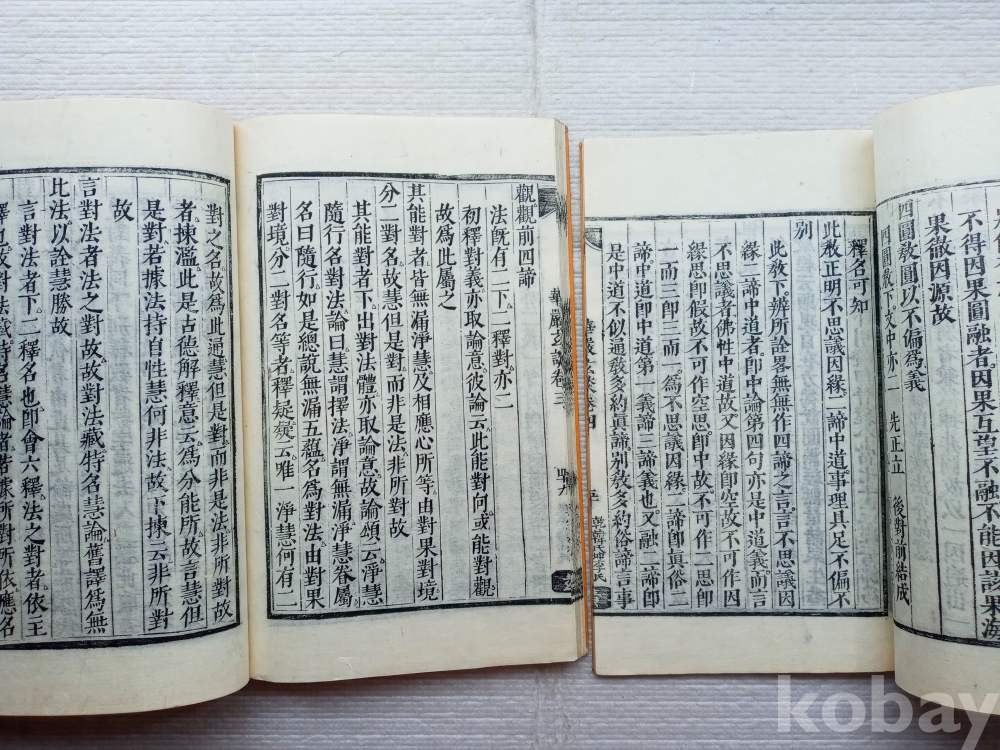 不得因果圓融者因果互望不融不能因該果海
果徹因源故
四圓教圓以不偏爲義
四圓教下文中亦二 先正立 後對前結成
釋名可知
此教正明不思議因緣二諦中道事理具足不偏不
別
此教下辨所詮畧無無作四諦之言言不思議因
緣二諦中道者卽中論第四句亦是中道義而言
不思議者佛性中道故又因緣卽空故不可作因
緣思卽假故不可作空思卽中故不可作二思卽
一而三卽三而一爲不思議因緣二諦卽眞俗二
諦中道卽中道第一義諦三諦義也又融二諦卽
是中道不似通教多約眞諦別教多約俗諦言事
觀觀前四諦
法旣有二下二釋對亦二
初釋對義亦取論意彼論云此能對向或能對觀
故爲此屬之
其能對者皆無漏淨慧及相應心所等由對果對境
分二對名故慧但是對而非是法非所對故
其能對者下出對法體亦取論意故論頌云淨慧
隨行名對法論曰慧謂擇法淨謂無漏淨慧眷屬
名曰隨行如是總說無漏五蘊名爲對法由對果
對境分二對名等者釋疑疑云唯一淨慧何有二
華嚴玄談卷三
對之名故爲此通慧但是對而非是法非所對故
者揀濫此是古德解釋意云爲分能所故言慧但
是對若據法持自性慧何非法故下揀云非所對
故
言對法者法之對故故對法藏特名慧論舊譯爲無
比法以詮慧勝故
言對法者下二釋名也卽會六釋法之對者依主
kobay